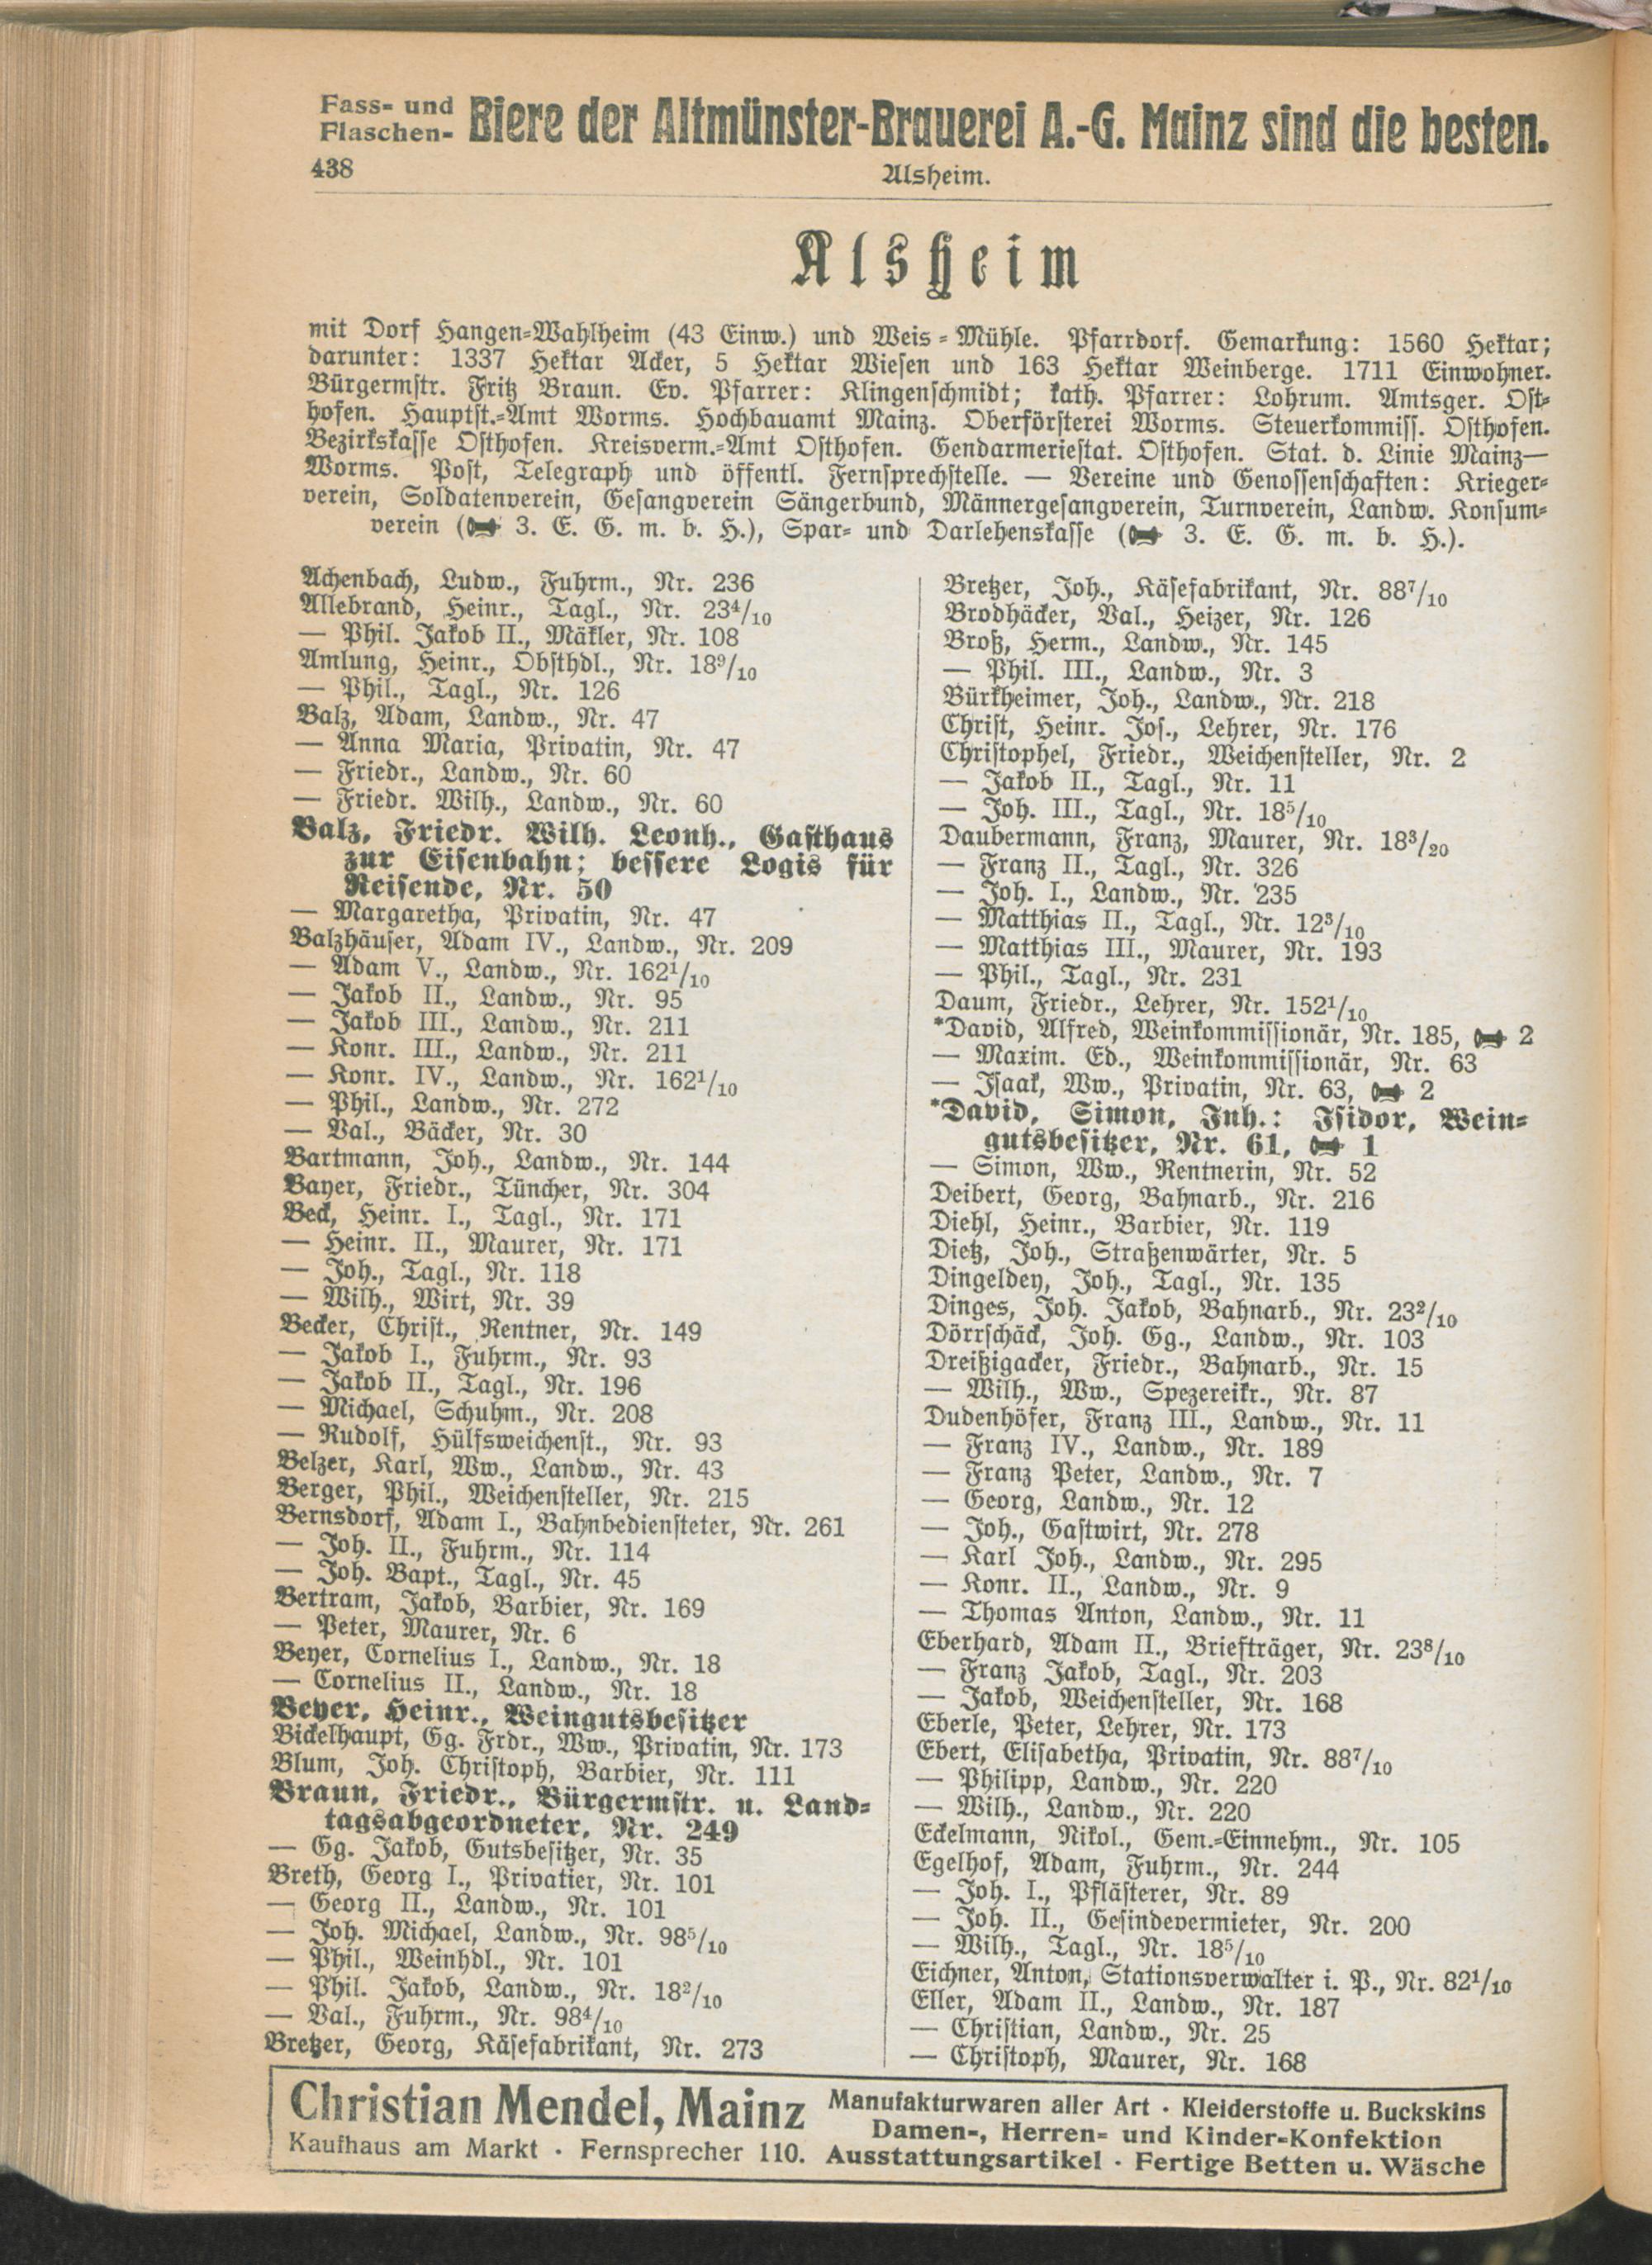 Fass- und
Flaschen- Biere der Altmünster-Brauerei A.-G. Mainz sind die besten.
438
Alsheim.
Alsheim
mit Dorf Hangen=Wahlheim (43 Einw.) und Weis=Mühle. Pfarrdorf. Gemarkung: 1560 Hektar;
darunter: 1337 Hektar Acker, 5 Hektar Wiesen und 163 Hektar Weinberge. 1711 Einwohner.
Bürgermstr. Fritz Braun. Ev. Pfarrer: Klingenschmidt; kath. Pfarrer: Lohrum. Amtsger. Ost=
hofen. Hauptst.=Amt Worms. Hochbauamt Mainz. Oberförsterei Worms. Steuerkommiss. Osthofen.
Bezirkskasse Osthofen. Kreisverm.=Amt Osthofen. Gendarmeriestat. Osthofen. Stat. d. Linie Mainz—
Worms. Post, Telegraph und öffentl. Fernsprechstelle. — Vereine und Genossenschaften: Krieger=
verein, Soldatenverein, Gesangverein Sängerbund, Männergesangverein, Turnverein, Landw. Konsum=
verein (3. E. G. m. b. H.), Spar= und Darlehenskasse (3. E. G. m. b. H.).
Achenbach, Ludw., Fuhrm., Nr. 236
Allebrand, Heinr., Tagl., Nr. 23⁴/₁₀
— Phil. Jakob II., Mäkler, Nr. 108
Amlung, Heinr., Obsthdl., Nr. 18⁹/₁₀
— Phil., Tagl., Nr. 126
Balz, Adam, Landw., Nr. 47
— Anna Maria, Privatin, Nr. 47
— Friedr., Landw., Nr. 60
— Friedr. Wilh., Landw., Nr. 60
Balz, Friedr. Wilh. Leonh., Gasthaus
zur Eisenbahn; bessere Logis für
Reisende, Nr. 50
— Margaretha, Privatin, Nr. 47
Balzhäuser, Adam IV., Landw., Nr. 209
— Adam V., Landw., Nr. 162¹/₁₀
— Jakob II., Landw., Nr. 95
— Jakob III., Landw., Nr. 211
— Konr. III., Landw., Nr. 211
— Konr. IV., Landw., Nr. 162¹/₁₀
— Phil., Landw., Nr. 272
— Val., Bäcker, Nr. 30
Bartmann, Joh., Landw., Nr. 144
Bayer, Friedr., Tüncher, Nr. 304
Beck, Heinr. I., Tagl., Nr. 171
— Heinr. II., Maurer, Nr. 171
— Joh., Tagl., Nr. 118
— Wilh., Wirt, Nr. 39
Becker, Christ., Rentner, Nr. 149
— Jakob I., Fuhrm., Nr. 93
— Jakob II., Tagl., Nr. 196
— Michael, Schuhm., Nr. 208
— Rudolf, Hülfsweichenst., Nr. 93
Belzer, Karl, Ww., Landw., Nr. 43
Berger, Phil., Weichensteller, Nr. 215
Bernsdorf, Adam I., Bahnbediensteter, Nr. 261
— Joh. II., Fuhrm., Nr. 114
— Joh. Bapt., Tagl., Nr. 45
Bertram, Jakob, Barbier, Nr. 169
— Peter, Maurer, Nr. 6
Beyer, Cornelius I., Landw., Nr. 18
— Cornelius II., Landw., Nr. 18
Beyer, Heinr., Weingutsbesitzer
Bickelhaupt, Gg. Frdr., Ww., Privatin, Nr. 173
Blum, Joh. Christoph, Barbier, Nr. 111
Braun, Friedr., Bürgermstr. u. Land=
tagsabgeordneter, Nr. 249
— Gg. Jakob, Gutsbesitzer, Nr. 35
Breth, Georg I., Privatier, Nr. 101
— Georg II., Landw., Nr. 101
— Joh. Michael, Landw., Nr. 98⁵/₁₀
— Phil., Weinhdl., Nr. 101
— Phil. Jakob, Landw., Nr. 18²/₁₀
— Val., Fuhrm., Nr. 98⁴/₁₀
Bretzer, Georg, Käsefabrikant, Nr. 273
Bretzer, Joh., Käsefabrikant, Nr. 88⁷/₁₀
Brodhäcker, Val., Heizer, Nr. 126
Broß, Herm., Landw., Nr. 145
— Phil. III., Landw., Nr. 3
Bürkheimer, Joh., Landw., Nr. 218
Christ, Heinr. Jos., Lehrer, Nr. 176
Christophel, Friedr., Weichensteller, Nr. 2
— Jakob II., Tagl., Nr. 11
— Joh. III., Tagl., Nr. 18⁵/₁₀
Daubermann, Franz, Maurer, Nr. 18³/₂₀
— Franz II., Tagl., Nr. 326
— Joh. I., Landw., Nr. 235
— Matthias II., Tagl., Nr. 12³/₁₀
— Matthias III., Maurer, Nr. 193
— Phil., Tagl., Nr. 231
Daum, Friedr., Lehrer, Nr. 152¹/₁₀
*David, Alfred, Weinkommissionär, Nr. 185, 2
— Maxim. Ed., Weinkommissionär, Nr. 63
— Isaak, Ww., Privatin, Nr. 63, 2
*David, Simon, Inh.: Isidor, Wein=
gutsbesitzer, Nr. 61, 1
— Simon, Ww., Rentnerin, Nr. 52
Deibert, Georg, Bahnarb., Nr. 216
Diehl, Heinr., Barbier, Nr. 119
Dietz, Joh., Straßenwärter, Nr. 5
Dingeldey, Joh., Tagl., Nr. 135
Dinges, Joh. Jakob, Bahnarb., Nr. 23²/₁₀
Dörrschäck, Joh. Gg., Landw., Nr. 103
Dreißigacker, Friedr., Bahnarb., Nr. 15
— Wilh., Ww., Spezereikr., Nr. 87
Dudenhöfer, Franz III., Landw., Nr. 11
— Franz IV., Landw., Nr. 189
— Franz Peter, Landw., Nr. 7
— Georg, Landw., Nr. 12
— Joh., Gastwirt, Nr. 278
— Karl Joh., Landw., Nr. 295
— Konr. II., Landw., Nr. 9
— Thomas Anton, Landw., Nr. 11
Eberhard, Adam II., Briefträger, Nr. 23⁸/₁₀
— Franz Jakob, Tagl., Nr. 203
— Jakob, Weichensteller, Nr. 168
Eberle, Peter, Lehrer, Nr. 173
Ebert, Elisabetha, Privatin, Nr. 88⁷/₁₀
— Philipp, Landw., Nr. 220
— Wilh., Landw., Nr. 220
Eckelmann, Nikol., Gem.=Einnehm., Nr. 105
Egelhof, Adam, Fuhrm., Nr. 244
— Joh. I., Pflästerer, Nr. 89
— Joh. II., Gesindevermieter, Nr. 200
— Wilh., Tagl., Nr. 18⁵/₁₀
Eichner, Anton, Stationsverwalter i. P., Nr. 82¹/₁₀
Eller, Adam II., Landw., Nr. 187
— Christian, Landw., Nr. 25
— Christoph, Maurer, Nr. 168
Christian Mendel, Mainz
Kaufhaus am Markt · Fernsprecher 110.
Manufakturwaren aller Art · Kleiderstoffe u. Buckskins
Damen-, Herren- und Kinder-Konfektion
Ausstattungsartikel · Fertige Betten u. Wäsche